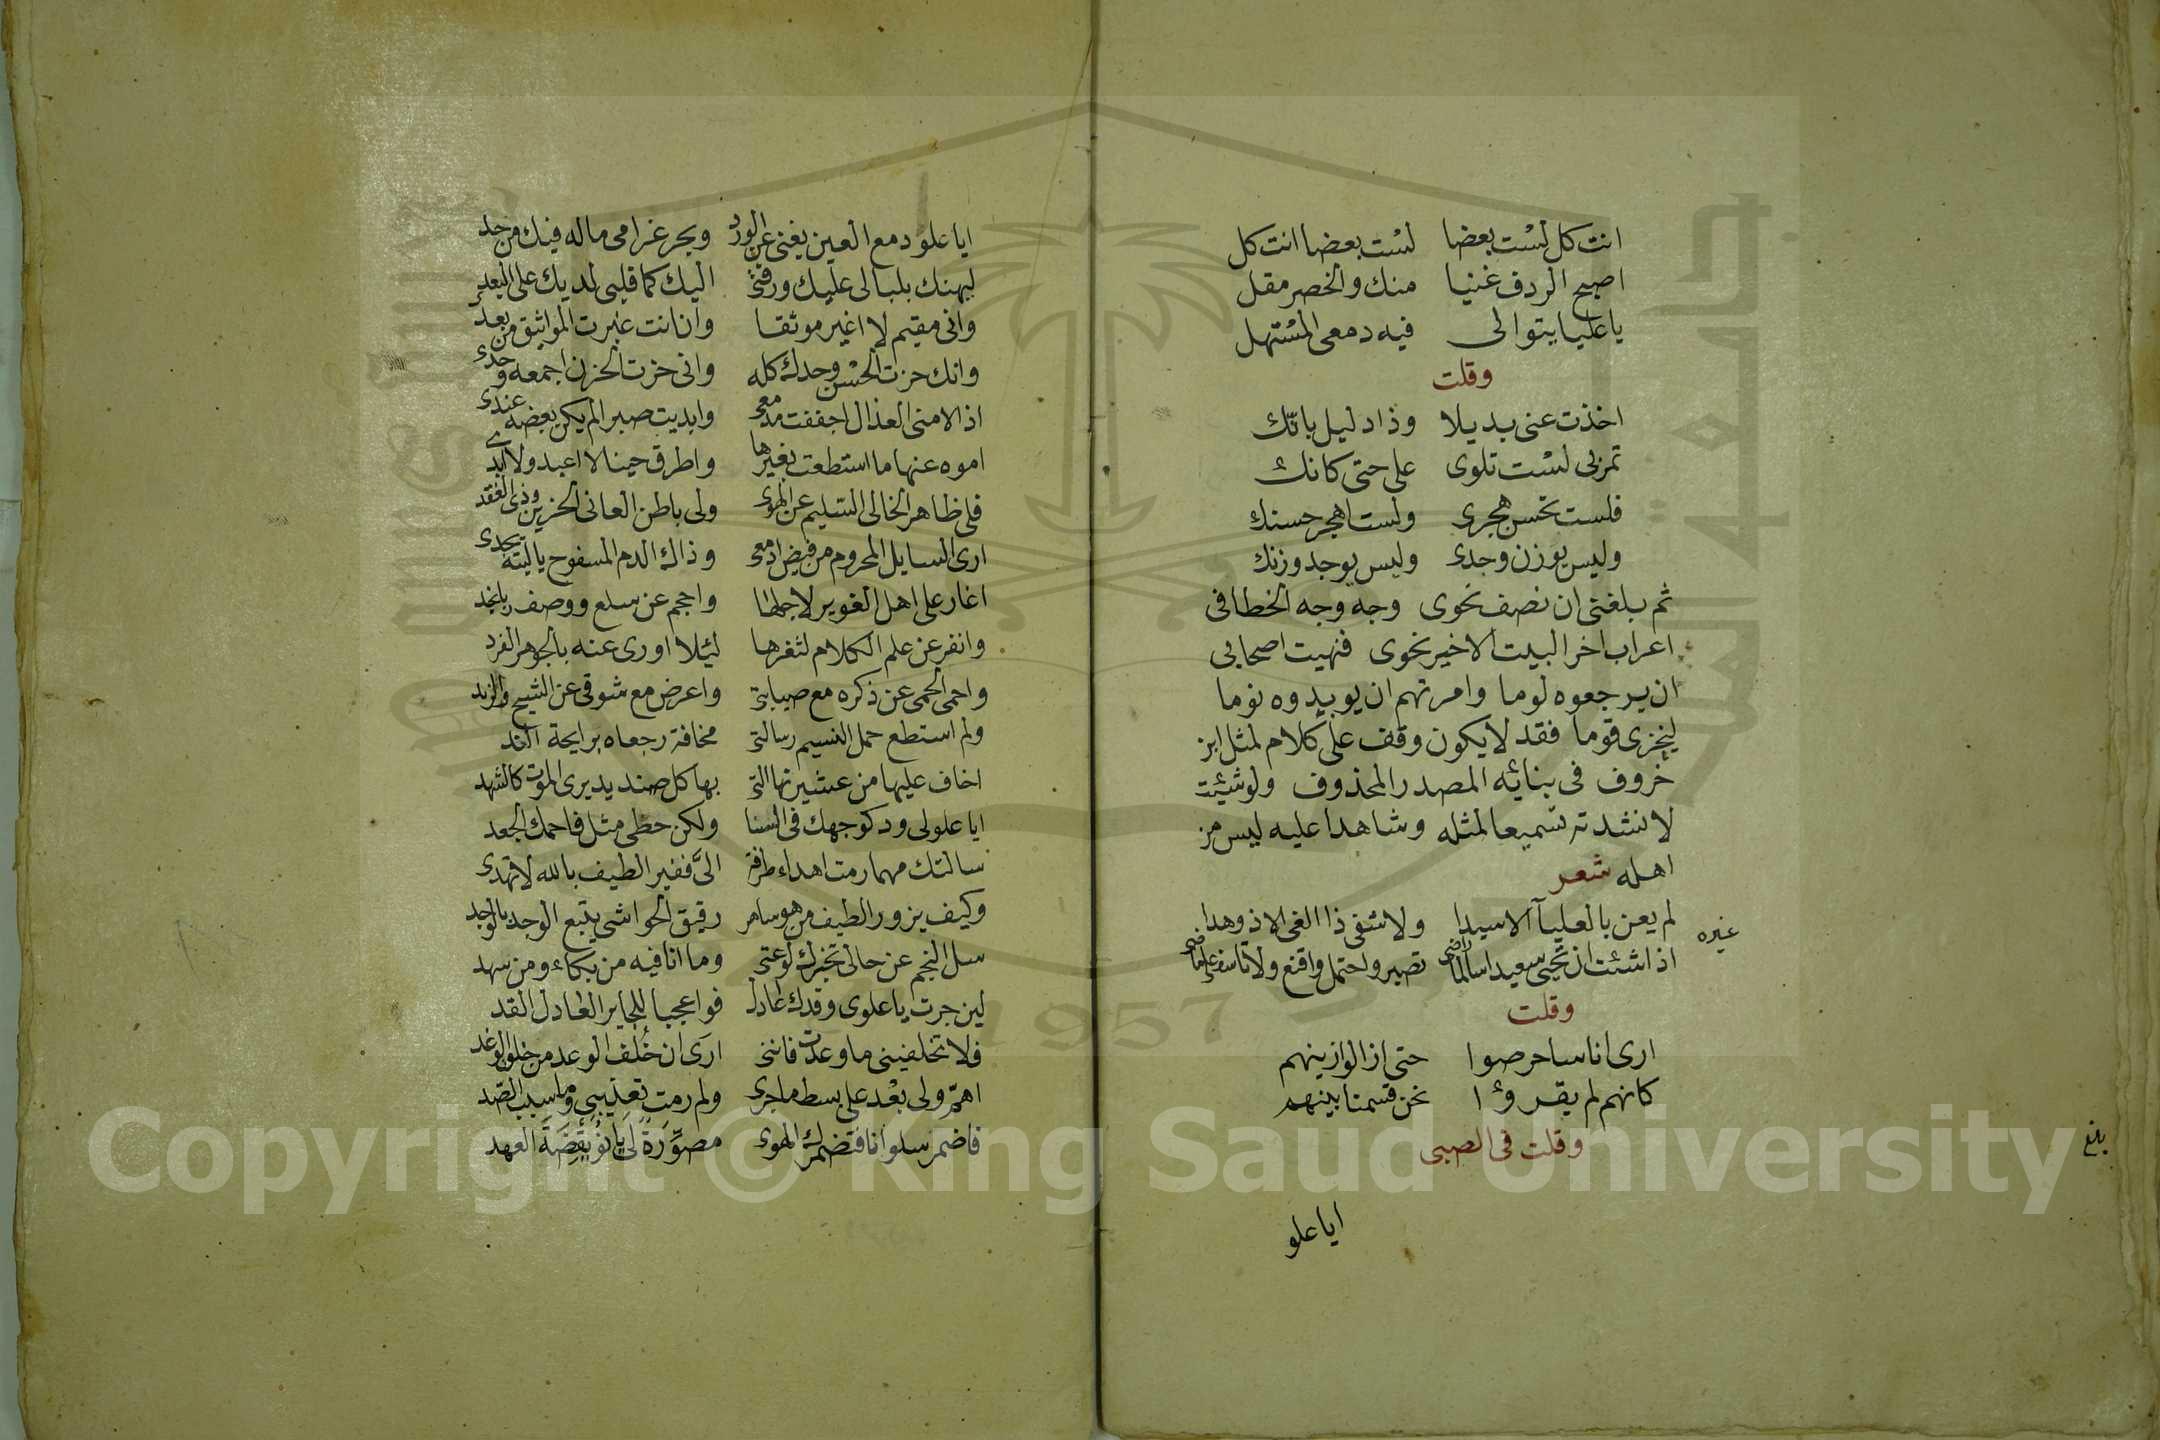 انت كل لست بعضا لست بعضا انت كل
اصبح الردف غنيا منك والخصر مقل
يا عليا يتوالى فيه دمعى المستهل
وقلت
اخذت عنى بديلا وذا دليل بانك
تمر بى لست تلوى على حتى كانك
فلست تحسن هجرى ولست اهجر حسنك
وليس يوزن وجدى وليس يوجد وزنك
ثم بلغنى ان نصف نحوى وجه وجه الخطا فى
اعراب اخر البيت الاخير نحوى فنهيت اصحابى
ان يرجعوه لوما وامرتهم ان يوبدوه نوما
ليخزى قوما فقد لا يكون وقف على كلام لمثل ابن
خروف فى بنائه المصدر المحذوف ولو شئت
لانشدته تسميعا لمثله وشاهدا عليه ليس من
اهله شعر
لم يعن بالعليآ الا سيدا ولا شفى ذا الغى الا ذو هدا
غيره
اذا شئت ان تحيى سعيدا سالما تصبر واحتمل واقنع ولا تاسف
وقلت
ارى اناسا حرصوا حتى ازالوا زينهم
كانهم لم يقروٴا نحن قسمنا بينهم
وقلت فى الصبى
بلغ
ايا علو
ايا علو دمع العين يغنى عن الورد وبحر غرامى ماله فيك من حد
ليهنك بلبالى عليك ورقتى اليك كما قلبى لديك على البعد
وانى مقيم لا اغير موثقا وان انت غيرت المواثيق من بعد
وانك حزت الحسن وحدك كله وانى حزت الحزن اجمعه وحدى
اذا لامنى العذال اجففت مدمعى وابديت صبرا لم يكن بعضه عندى
اموه عنها ما استطعت بغيرها واطرق حينا لا اعيد ولا ابدى
فلى ظاهر الخالى السليم عن الهوى ولى باطن العانى الحزين وذى الفقد
ارى السايل المحروم من فيض ادمعى وذاك الدم المسفوح يا ليته يجدى
اغار على اهل الغوير لاجلها واحجم عن سلع ووصف ربا نجد
وانفر عن علم الكلام لثغرها ليلا اورى عنه بالجوهر الفرد
واحمى الحمى عن ذكره مع صبابتى واعرض مع شوقى عن الشيح والرند
ولم استطع حمل النسيم رسالتى مخافة رجعاه برايحة الند
اخاف عليها من عشيرتها التى بها كل صنديد يرى الموت كالشهد
ايا علو لى ود كوجهك فى السنا ولكن حظى مثل فاحمك الجعد
سالتك مهما رمت اهداء طرفة الىَّ فغير الطيف بالله لا تهدى
وكيف يزور الطيف من هو ساهر رقيق الحواشى يتبع الوجد بالوجد
سل النجم عن حالى تخبرك لوعتى وما انا فيه من بكاء ومن سهد
لين جرت يا علوى وقدك عادل فواعجبا للجاير العادل القد
فلا تخلفينى ما وعدت فاننى ارى ان خُلف الوعد من خلق الوغد
اهمّ ولى بعْد على بسط ما جرى ولم رمت تعذيبى وما سبب الصد
فاضمر سلوانا فتضمرك الهوى مصوَّرةً لى يا العهد